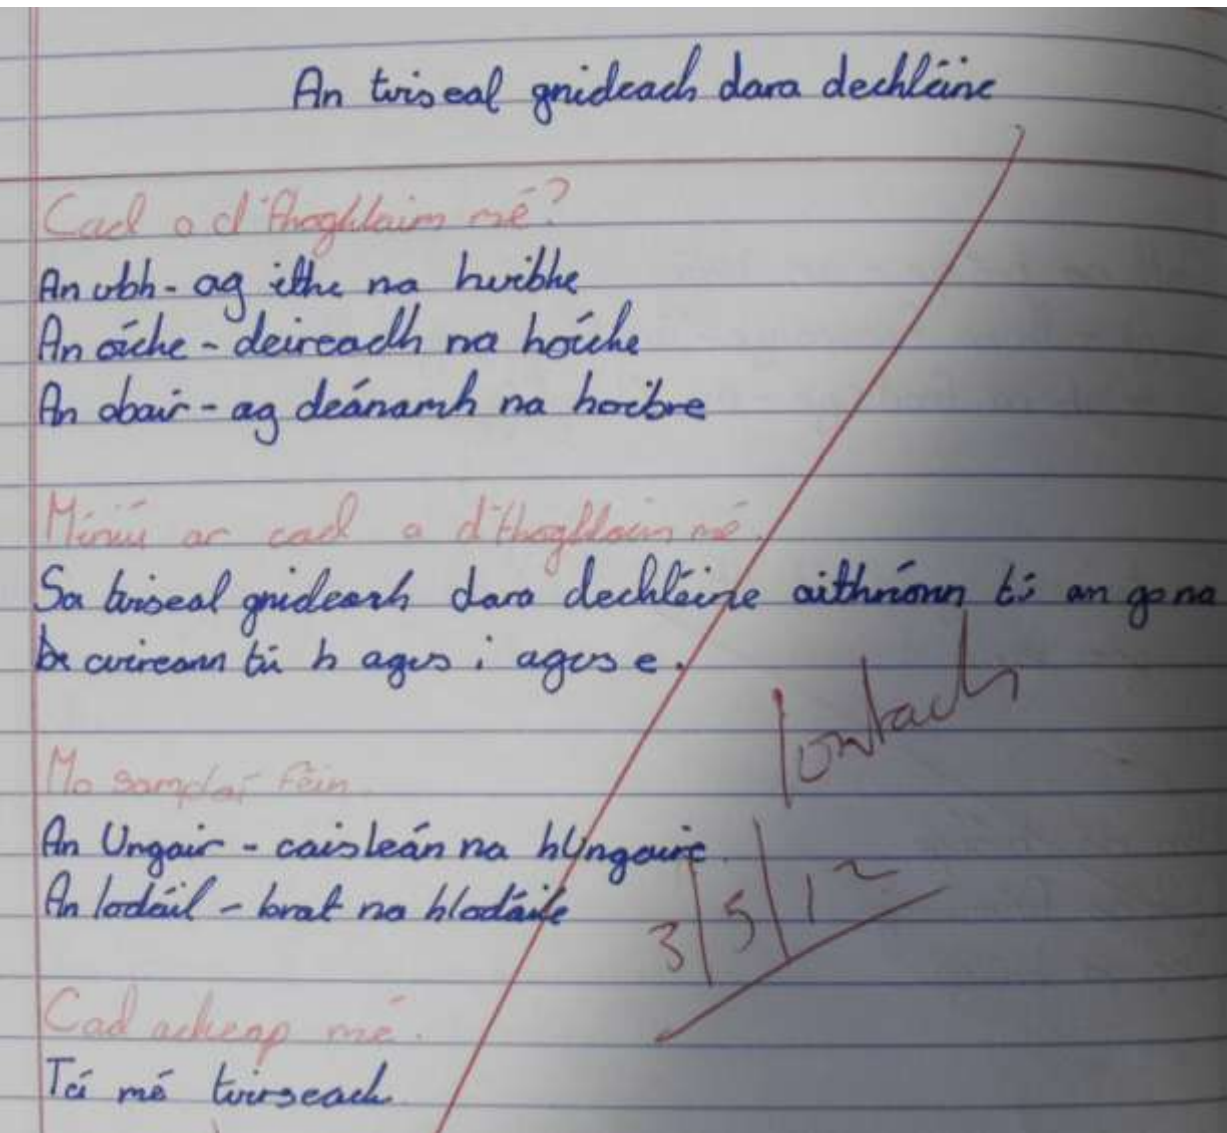 An tuiseal gnideach dara dechláine
Cad a d'fhoghlaim mé?
An ubh - ag ithe na huibhe
An oíche - deireadh na hoíche
An obair - ag deánamh na hoibre
Míniú ar cad a d'fhoghlaim mé.
Sa tuiseal gnideach dara dechláine aithríonn tú an go na
be cuireann tú h agus i agus e.
lontach
Mo samplaí féin.
An Ungair - caisleán na hUngaire.
An Iodáil - brat na hIodáile
3/5/12
Cad mé.
Tá mé tuirseach.